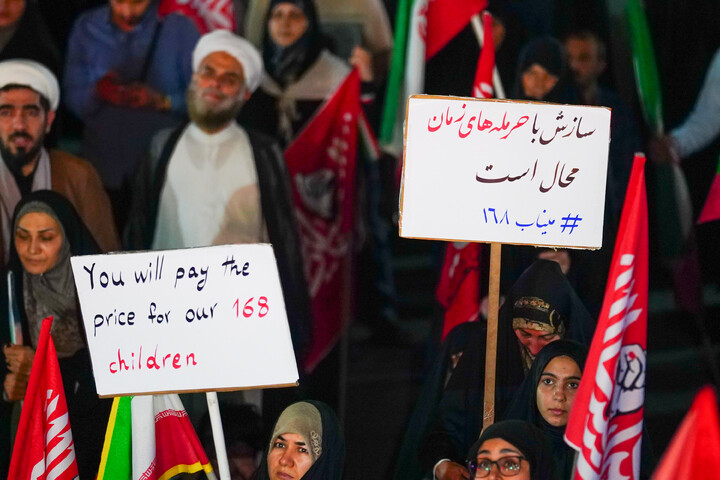 You will pay the
price for our 168
children
سازش با حرمله‌های زمان
محال است
#میناب ۱۶۸